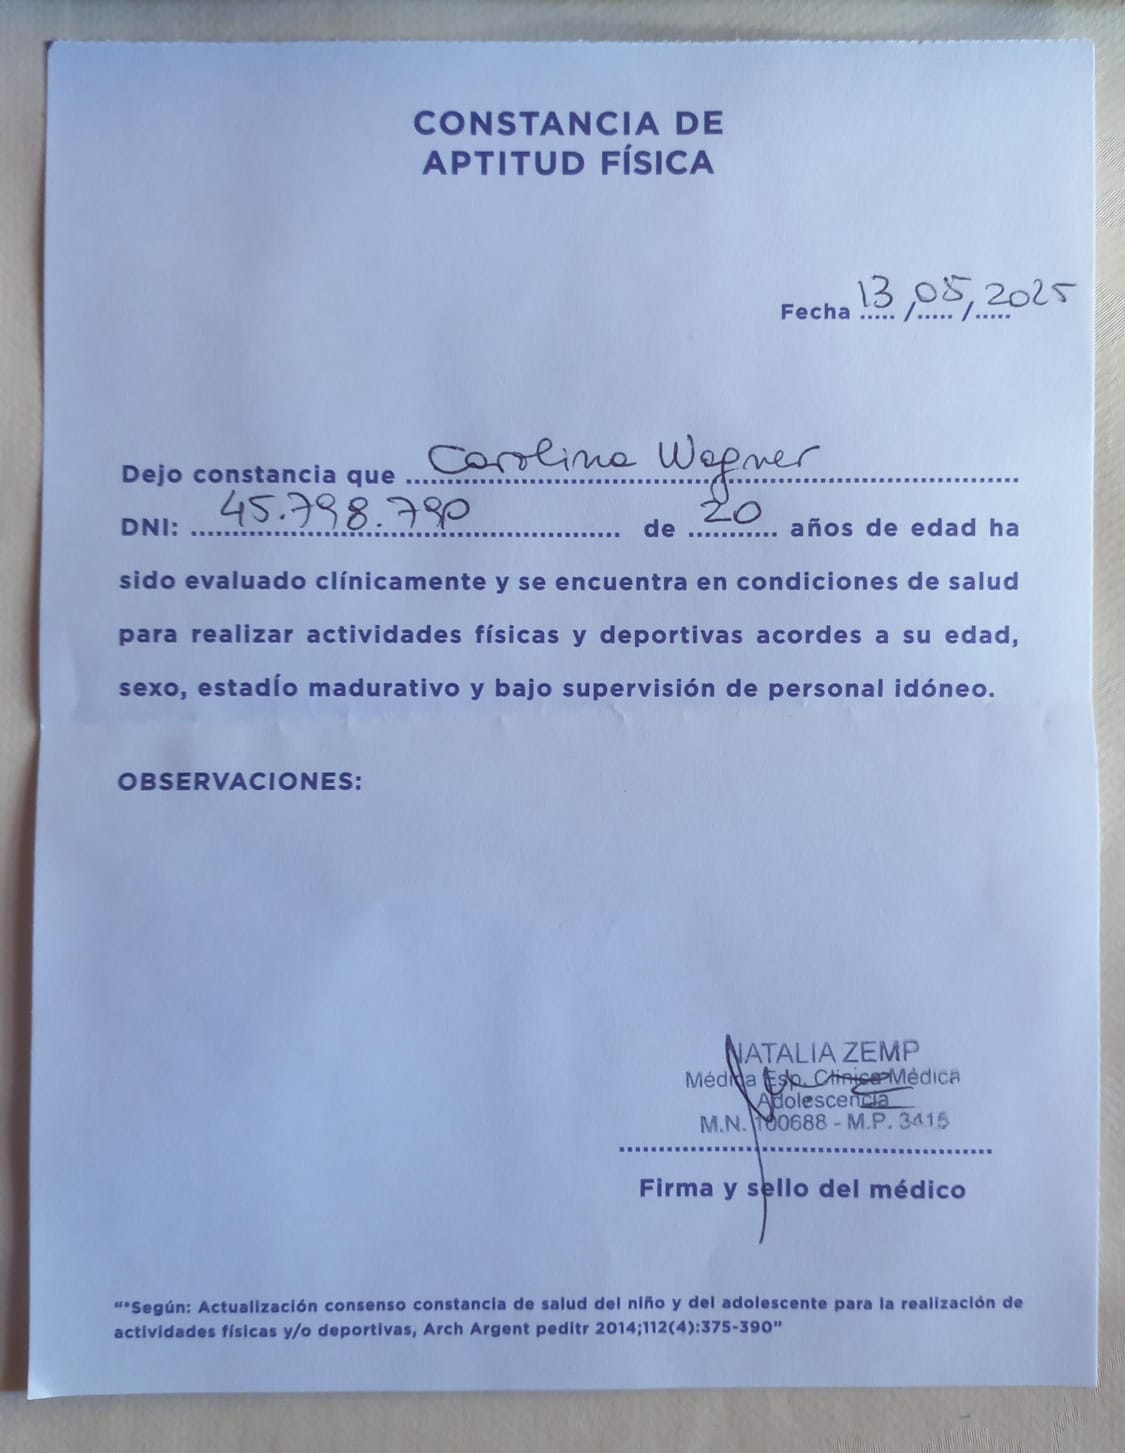 CONSTANCIA DE
APTITUD FÍSICA
Fecha 13/05/2025
Dejo constancia que Carolina Wagner
DNI: 45.798.790 de 20 años de edad ha
sido evaluado clínicamente y se encuentra en condiciones de salud
para realizar actividades físicas y deportivas acordes a su edad,
sexo, estadío madurativo y bajo supervisión de personal idóneo.
OBSERVACIONES:
NATALIA ZEMP
Médica Esp. Clínica Médica
Adolescencia
M.N. 100688 - M.P. 3415
Firma y sello del médico
"*Según: Actualización consenso constancia de salud del niño y del adolescente para la realización de
actividades físicas y/o deportivas, Arch Argent peditr 2014;112(4):375-390"